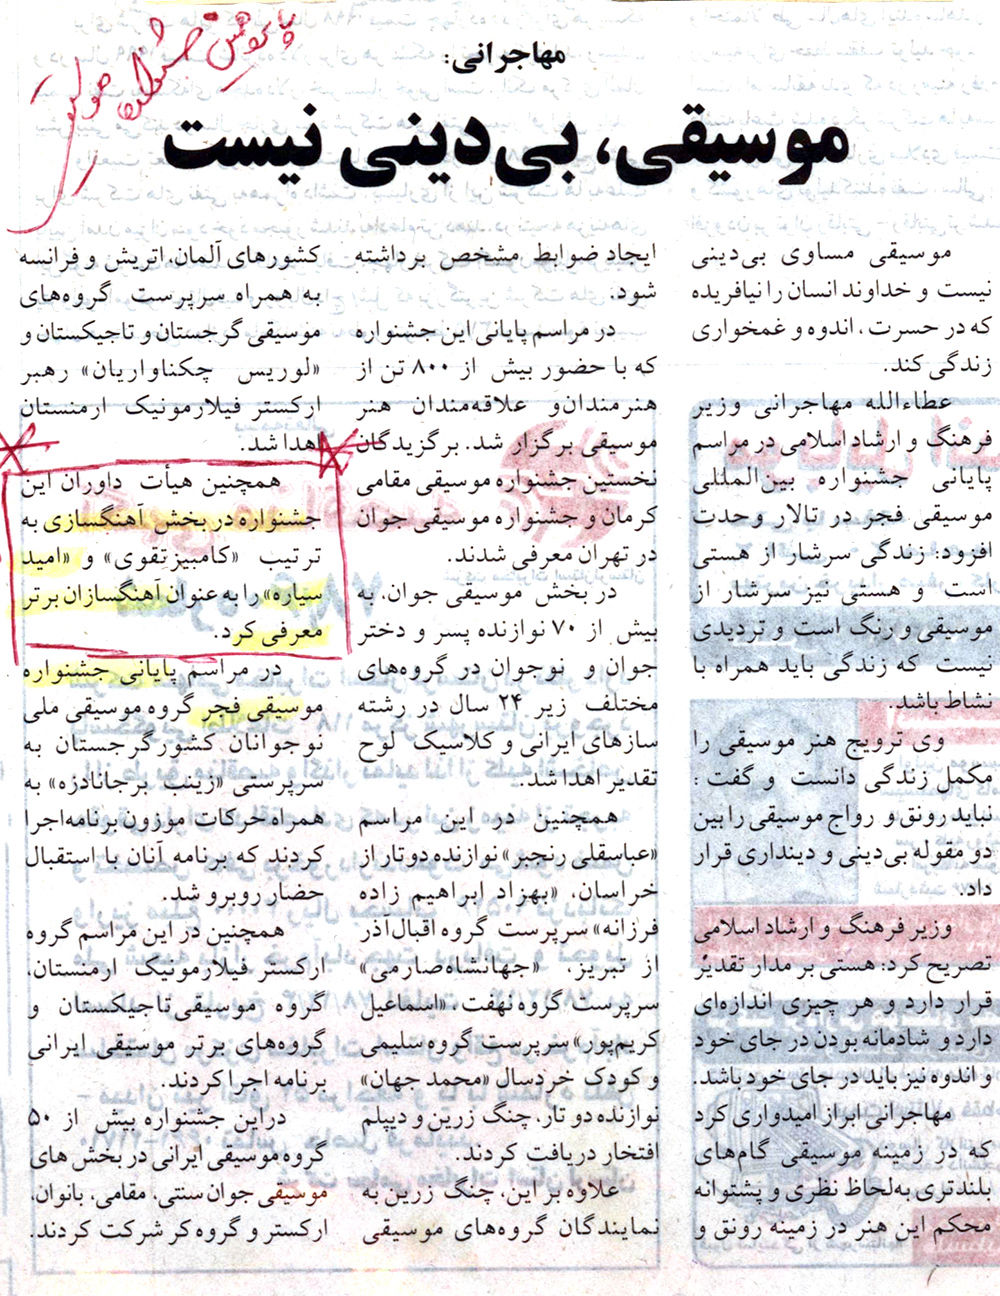 مهاجرانی:
موسیقی، بی‌دینی نیست
موسیقی مساوی بی‌دینی
نیست و خداوند انسان را نیافریده
که در حسرت، اندوه و غمخواری
زندگی کند.
عطاءالله مهاجرانی وزیر
فرهنگ و ارشاد اسلامی در مراسم
پایانی جشنواره بین‌المللی
موسیقی فجر در تالار وحدت
افزود: زندگی سرشار از هستی
است و هستی نیز سرشار از
موسیقی و رنگ است و تردیدی
نیست که زندگی باید همراه با
نشاط باشد.
وی ترویج هنر موسیقی را
مکمل زندگی دانست و گفت :
نباید رونق و رواج موسیقی را بین
دو مقوله بی‌دینی و دینداری قرار
داد.
وزیر فرهنگ و ارشاد اسلامی
تصریح کرد: هستی بر مدار تقدیر
قرار دارد و هر چیزی اندازه‌ای
دارد و شادمانه بودن در جای خود
و اندوه نیز باید در جای خود باشد.
مهاجرانی ابراز امیدواری کرد
که در زمینه موسیقی گام‌های
بلندتری به‌لحاظ نظری و پشتوانه
محکم این هنر در زمینه رونق و
ایجاد ضوابط مشخص برداشته
شود.
در مراسم پایانی این جشنواره
که با حضور بیش از ۸۰۰ تن از
هنرمندان و علاقه‌مندان هنر
موسیقی برگزار شد. برگزیدگان
نخستین جشنواره موسیقی مقامی
کرمان و جشنواره موسیقی جوان
در تهران معرفی شدند.
در بخش موسیقی جوان، به
بیش از ۷۰ نوازنده پسر و دختر
جوان و نوجوان در گروه‌های
مختلف زیر ۲۴ سال در رشته
سازهای ایرانی و کلاسیک لوح
تقدیر اهدا شد.
همچنین در این مراسم
«عباسقلی رنجبر» نوازنده دوتار از
خراسان، «بهزاد ابراهیم زاده
فرزانه» سرپرست گروه اقبال‌آذر
از تبریز، «جهانشاه‌صارمی»
سرپرست گروه نهفت، «اسماعیل
کریم‌پور» سرپرست گروه سلیمی
و کودک خردسال «محمد جهان»
نوازنده دو تار، چنگ زرین و دیپلم
افتخار دریافت کردند.
علاوه بر این، چنگ زرین به
نمایندگان گروه‌های موسیقی
کشورهای آلمان، اتریش و فرانسه
به همراه سرپرست گروه‌های
موسیقی گرجستان و تاجیکستان و
«لوریس چکناواریان» رهبر
ارکستر فیلارمونیک ارمنستان
اهدا شد.
همچنین هیأت داوران این
جشنواره در بخش آهنگسازی به
ترتیب «کامبیز تقوی» و «امید
سیاره» را به عنوان آهنگسازان برتر
معرفی کرد.
در مراسم پایانی جشنواره
موسیقی فجر گروه موسیقی ملی
نوجوانان کشور گرجستان به
سرپرستی «زینب برجانادزه» به
همراه حرکات موزون برنامه اجرا
کردند که برنامه آنان با استقبال
حضار روبرو شد.
همچنین در این مراسم گروه
ارکستر فیلارمونیک ارمنستان،
گروه موسیقی تاجیکستان و
گروه‌های برتر موسیقی ایرانی
برنامه اجرا کردند.
در این جشنواره بیش از ۵۰
گروه موسیقی ایرانی در بخش های
موسیقی جوان سنتی، مقامی، بانوان،
ارکستر و گروه کر شرکت کردند.